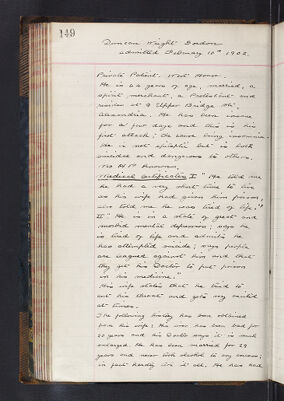 149
Duncan Wright Gordon
admitted February 10th 1902.
Private Patient. West House.
He is 44 years of age, married, a
spirit merchant, a Protestant and
resides at 9 Upper Bridge St
Alexandria. He has been insane
for a few days and this is his
first attack; the cause being insomnia.
He is not epileptic but is both
suicidal and dangerous to others.
Medical Certificates I "He told me
he had a very short time to live
as his wife had given him poison;
also told me he was tired of life".
II" He is in a state of great and
morbid mental depression; says he
is tired of life and admits he
has attempted suicide; says people
are leagued against him and that
they get his Doctor to put poison
in his medicine."
His wife states that he tried to
cut his throat and gets very excited
at times.
The following history has been obtained
from his wife: His liver has been bad for
20 years and his Doctor says it is much
enlarged. He has been married for 29
years and never took alcohol to any excess;
in fact hardly at all. He has had